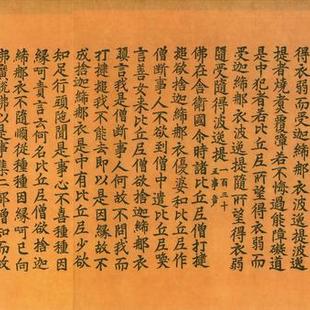 得衣弱而受迦絺那衣波逸提波逸
提者燒煮覆障若不悔過能障礙道
是中犯者若比丘尼所望得衣弱而
受迦絺那衣波逸提隨所望得衣弱
隨受隨得波逸提 百三十五事竟
佛在舍衛國尒時諸比丘尼僧打揵
搥欲捨迦絺那衣優婆和比丘尼作
僧斷事人不欲到僧中遣比丘尼喚
言善女來比丘尼僧欲捨迦絺那衣
言我是僧斷事人何故不問我而
打揵搥我不能去即以是因緣故不
成捨迦絺那衣是中有比丘尼少欲
知足行頭陀聞是事心不喜種種因
緣呵責言云何名比丘尼僧欲捨迦
絺那衣不隨順從種種因緣呵已向
佛廣說佛以是事集二部僧知而故